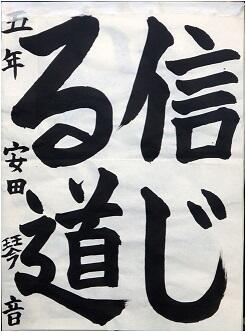 信じ
る道
五年 安田 琴音